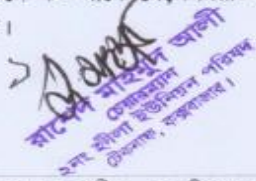 ।
রাশেদ মাহমুদ আলী
চেয়ারম্যান
২নং হ্নীলা ইউনিয়ন পরিষদ
টেকনাফ, কক্সবাজার।